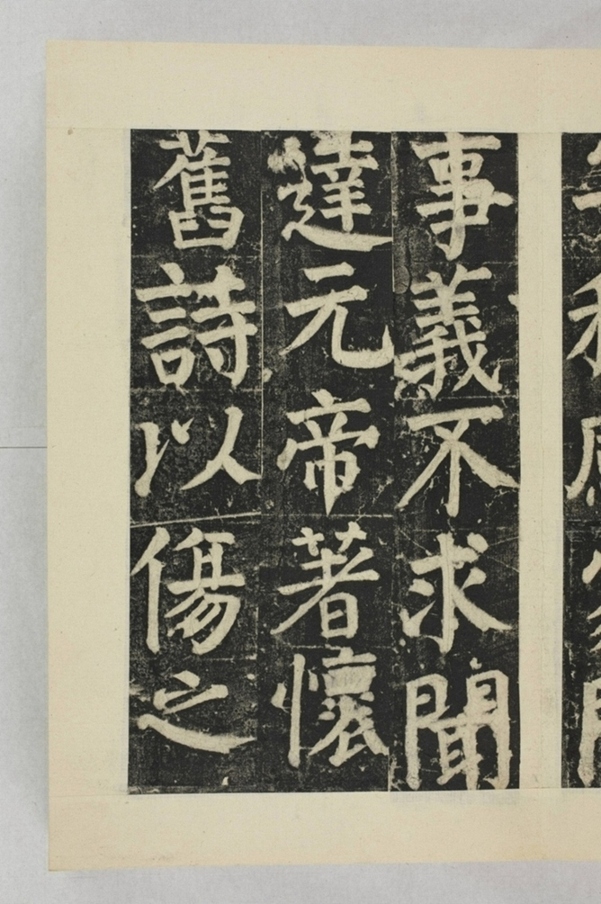 事義不求聞
達元帝著懷
舊詩以傷之